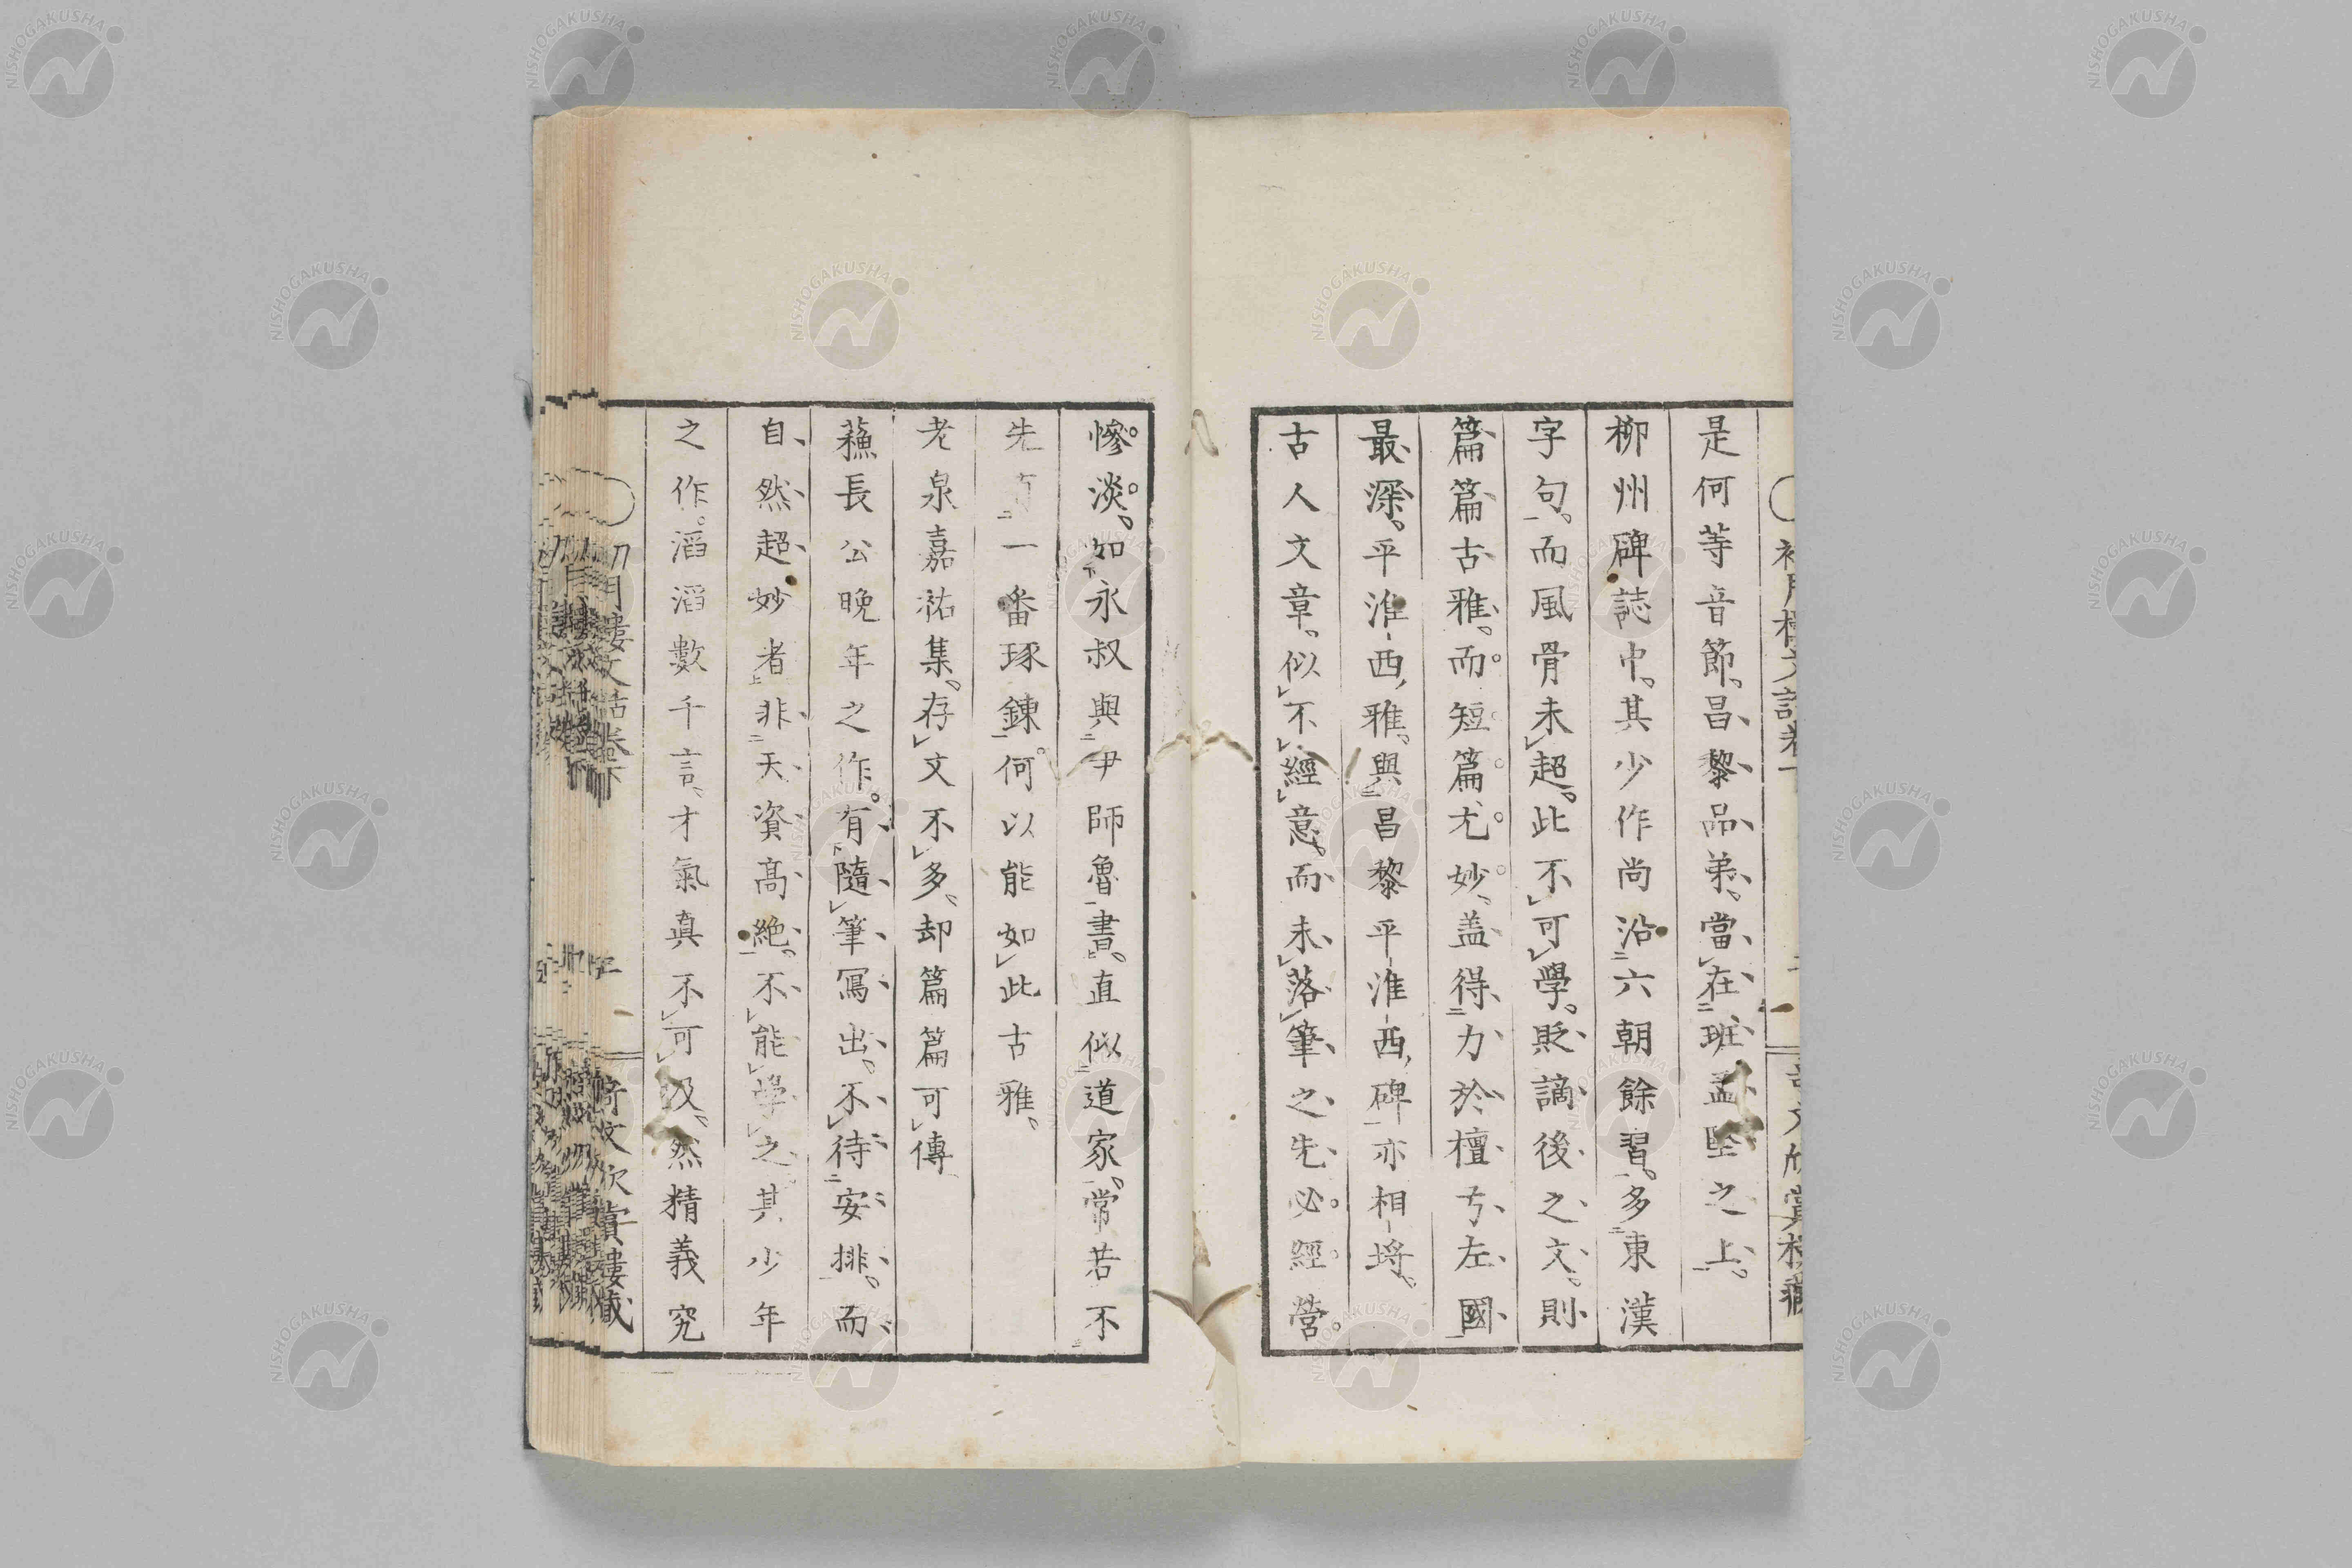 是何等音節。昌黎品第、當在班孟堅之上。
柳州碑誌中。其少作尚沿六朝餘習。多東漢
字句。而風骨未超。此不可學。貶謫後之文。則
篇篇古雅。而短篇尤妙。盖得力於檀弓左國
最深。平淮西雅。與昌黎平淮西碑亦相埒。
古人文章。似不經意。而未落筆之先必經營
慘淡。如永叔與尹師魯書。直似道家常。若不
先 一番琢鍊。何以能如此古雅。
老泉嘉祐集。存文不多、却篇篇可傳
蘓長公晚年之作。有隨筆寫出。不待安排。而
自然超妙者非天資高絶。不能學之。其少年
之作。滔滔數千言、才氣真不可及、然精義究
月樓文話卷下
奇文欣賞樓藏
NISHOGAKUSHA